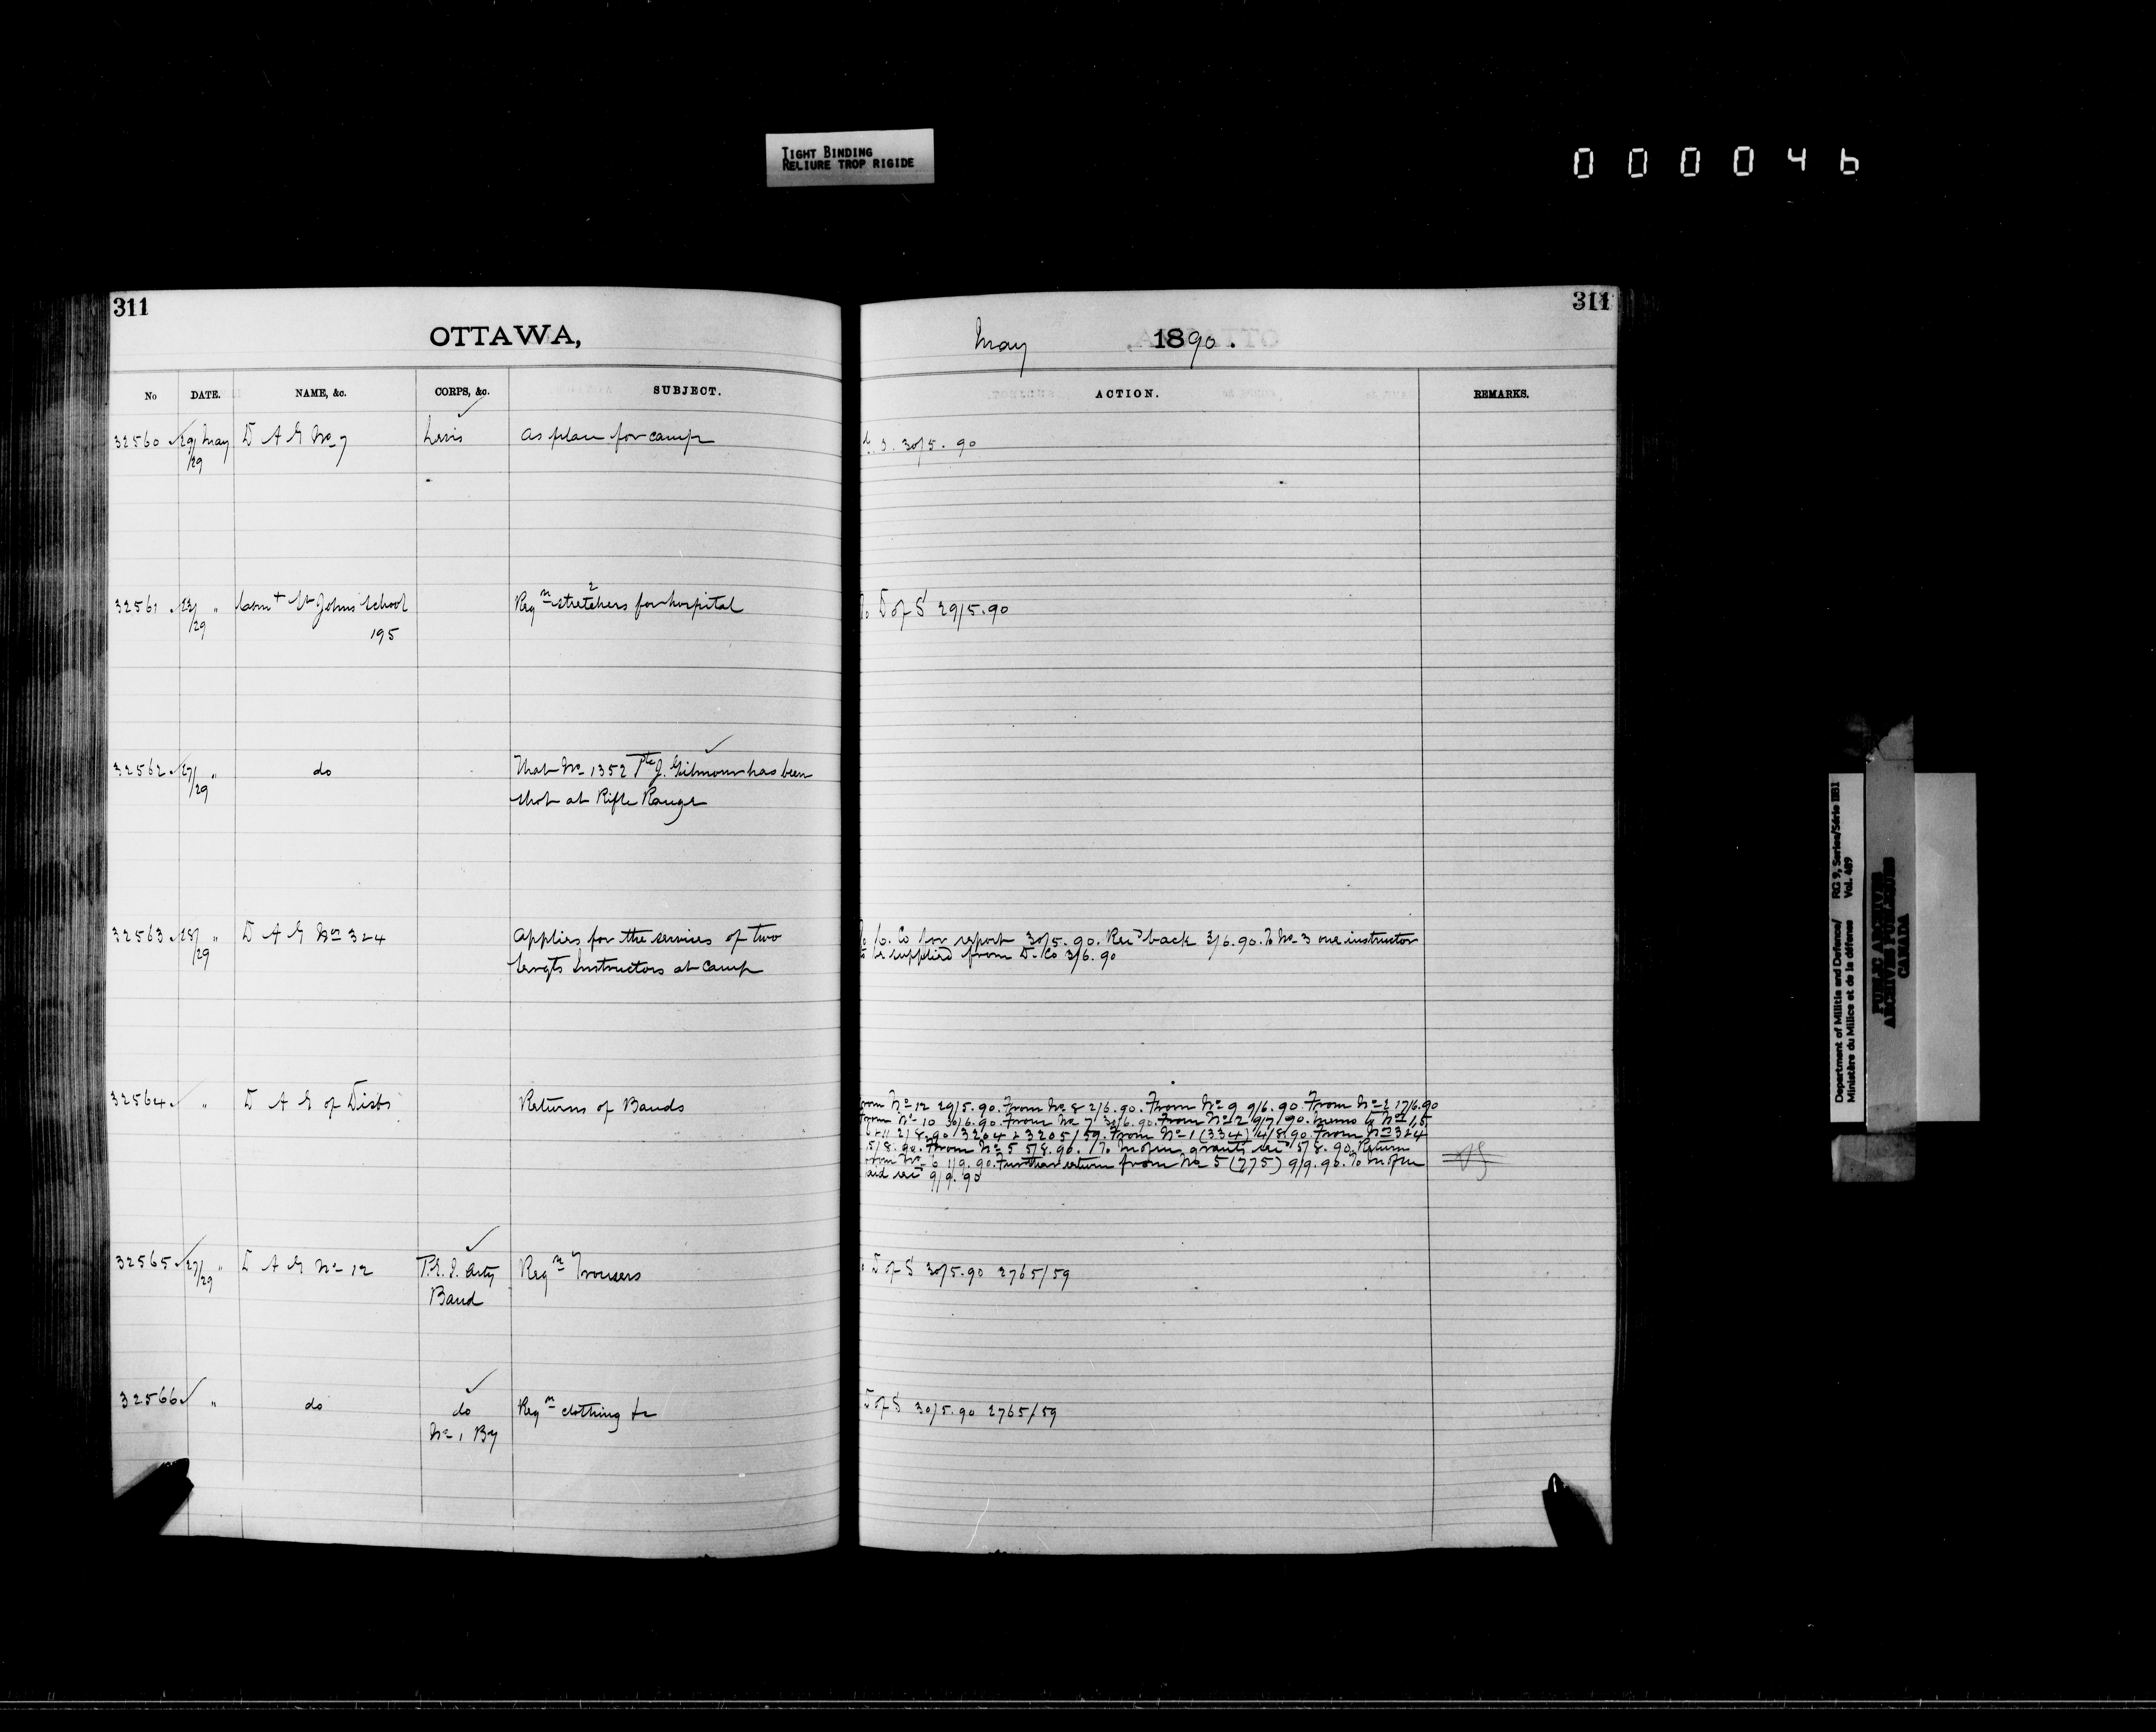 TIGHT BINDING
RELIURE TROP RIGIDE
000046
311
OTTAWA,
No DATE. NAME, &c. CORPS, &c. SUBJECT.
32560 29/ May D A G No 7 Levis As place for camp
/29
32561 23/ " Comt St Johns School Reqn 2 stretchers for hospital
/29 195
32562 27/ " do That No 1352 Pte J. Gilmour has been
/29 shot at Rifle Range
32563 28/ " D A G Nos 3 & 4 Applies for the services of two
/29 Sergts Instructors at Camp
32564 " D A G of Dists Returns of Bands
32565 27/ " D A G No 12 P.E.I. Arty Reqn Trousers
/29 Band
32566 " do do Reqn clothing &c
No 1 By
311
May 1890.
ACTION. REMARKS.
30/5.90
D of S 29/5.90
Co for report 30/5.90. Recd back 3/6.90. To No 3 one instructor
to be supplied from D. Co 3/6.90
from No 12 29/5.90. From No 8 2/6.90. From No 9 9/6.90. From No 2 17/6.90
from No 10 30/6.90. From No 7 30/6.90. From No 2 9/7/90. Memo to Nos 1, 5
& 11 2/8.90 3204 & 3205/59. From No 1 (334) 4/8.90. From Nos 3 & 4
5/8.90. From No 5 5/8.90. To grants 5/8.90. Return
from No 6 1/9.90. Further return from No 5 (775) 9/9.90. To
and 9/9.90
D of S 30/5.90 2765/59
D of S 30/5.90 2765/59
Department of Militia and Defence/ RG 9, Series/Série IIB1
Ministère du Milice et de la défense Vol. 489
PUBLIC ARCHIVES
ARCHIVES PUBLIQUES
CANADA